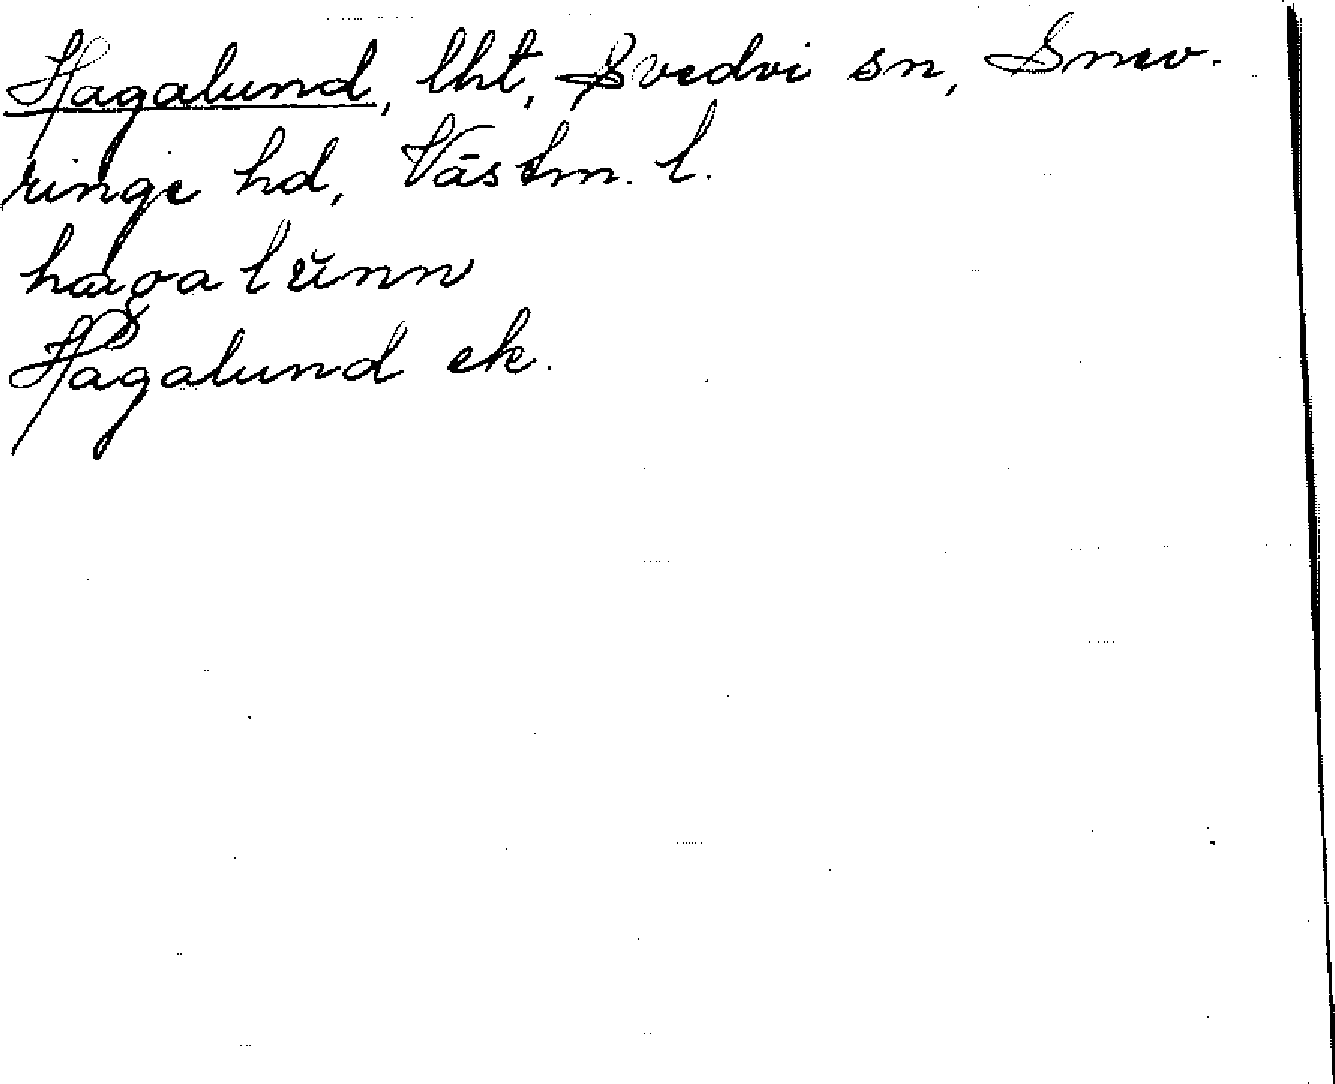 Hagalund, lht, Svedvi sn, Snev-
ringe hd, Västm. l.
hagalŭnn
Hagalund ek.